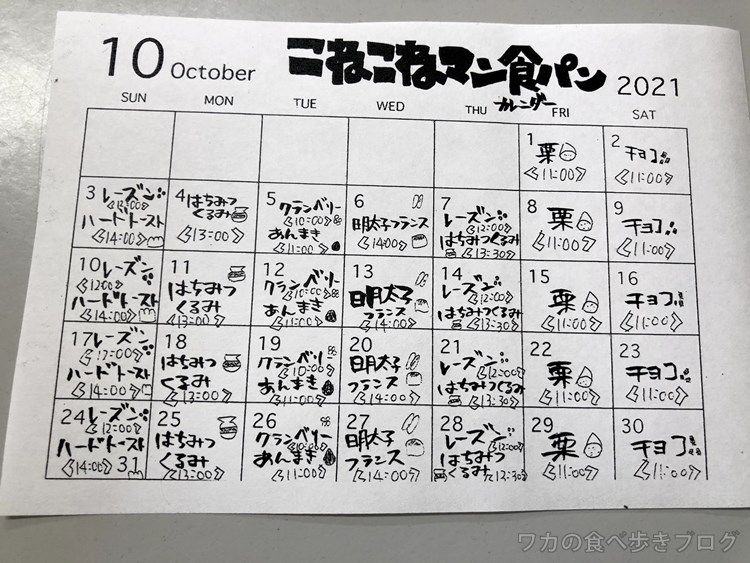 10 October こねこねマン食パン 2021
カレンダー
SUN MON TUE WED THU FRI SAT
1 栗
<11:00>
2 チョコ
<11:00>
3 レーズン
<12:00>
ハードトースト
<14:00>
4 はちみつ
くるみ
<13:00>
5 クランベリー
<10:00>
あんまき
<11:00>
6
明太子フランス
<14:00>
7
レーズン
<12:00>
はちみつくるみ
<13:30>
8 栗
<11:00>
9
チョコ
<11:00>
10 レーズン
<12:00>
ハードトースト
<14:00>
11
はちみつ
くるみ
<13:00>
12
クランベリー
<10:00>
あんまき
<11:00>
13
明太子
フランス
<14:00>
14
レーズン
<12:00>
はちみつくるみ
<13:30>
15
栗
<11:00>
16
チョコ
<11:00>
17 レーズン
<12:00>
ハードトースト
<14:00>
18
はちみつ
くるみ
<13:00>
19
クランベリー
<10:00>
あんまき
<11:00>
20
明太子
フランス
<14:00>
21
レーズン
<12:00>
はちみつくるみ
<13:30>
22
栗
<11:00>
23
チョコ
<11:00>
24 レーズン
<12:00>
ハードトースト
<14:00> 31
25
はちみつ
くるみ
<13:00>
26
クランベリー
<10:00>
あんまき
<11:00>
27
明太子
フランス
<14:00>
28
レーズン
<12:00>
はちみつ
くるみ <13:30>
29
栗
<11:00>
30
チョコ
<11:00>
ワカの食べ歩きブログ